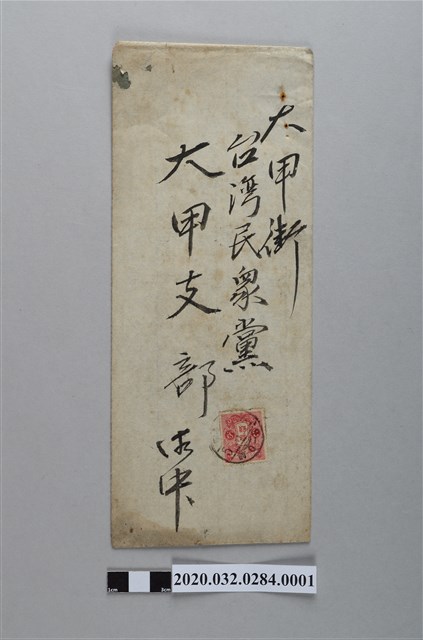 大甲街
台湾民衆黨
大甲支部 御中
1cm 3cm
2020.032.0284.0001